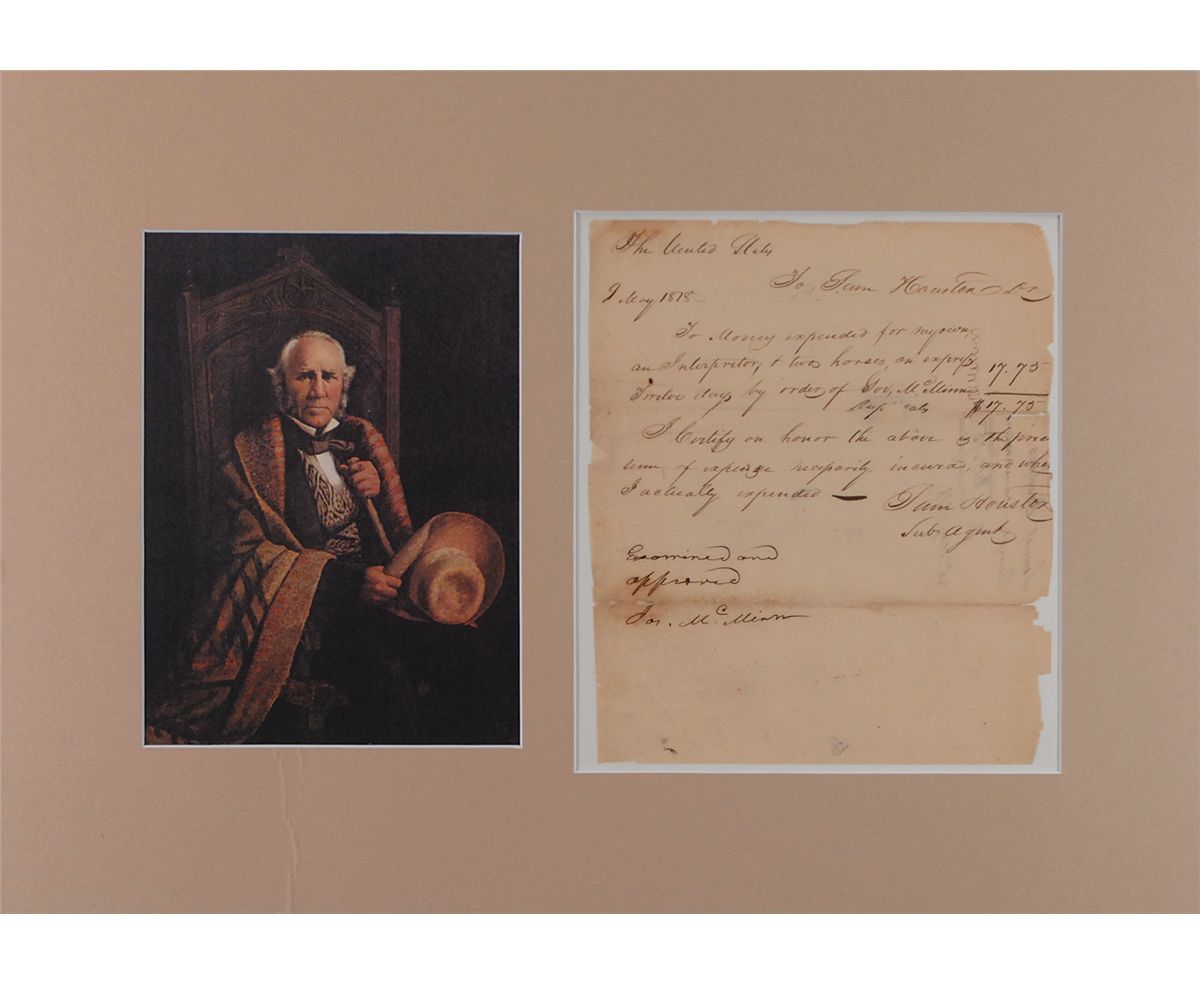 The United States
To Sam Houston Dr
9 May 1818
To Money expended for my own,
an Interpretor, & two horses, on express 17.75
Twelve days by order of Gov, McMinn
$17.75
I Certify on honor the above is the
sum of expense necessarily incured, and
I actually expended —
Sam Houston
Sub Agent
Examined and
approved
Jos. McMinn